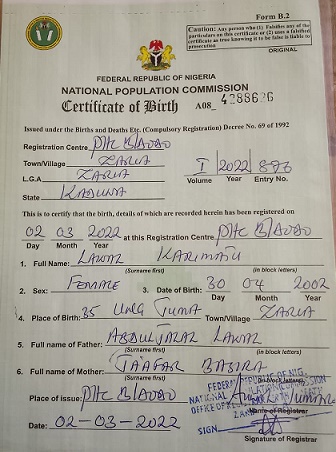 Form B.2
Caution: Any person who (1) Falsifies any of the
particulars on this certificate or (2) uses a falsified
certificate as true knowing it to be false is liable to
prosecution
ORIGINAL
FEDERAL REPUBLIC OF NIGERIA
NATIONAL POPULATION COMMISSION
Certificate of Birth A08_
Issued under the Births and Deaths Etc. (Compulsory Registration) Decree No. 69 of 1992
Registration Centre PHC B/DODO
Town/Village ZARIA
L.G.A ZARIA
State KADUNA
I 2022 876
Volume Year Entry No.
This is to certify that the birth, details of which are recorded herein has been registered on
02 03 2022 at this Registration Centre PHC B/DODO
Day Month Year
1. Full Name: LAWAL KARIMATU
(Surname first) (in block letters)
2. Sex: FEMALE 3. Date of Birth: 30 04 2002
Day Month Year
4. Place of Birth: 35 UNG JUMA Town/Village ZARIA
5. Full name of Father: ABDULJALAL LAWAL
(Surname first) (in block letters)
6. Full name of Mother: JAAFAR BASIRA
(Surname first) (in block letters)
Place of issue: PHC B/DODO
Name of Registrar
Date: 02-03-2022
SIGN
Signature of Registrar